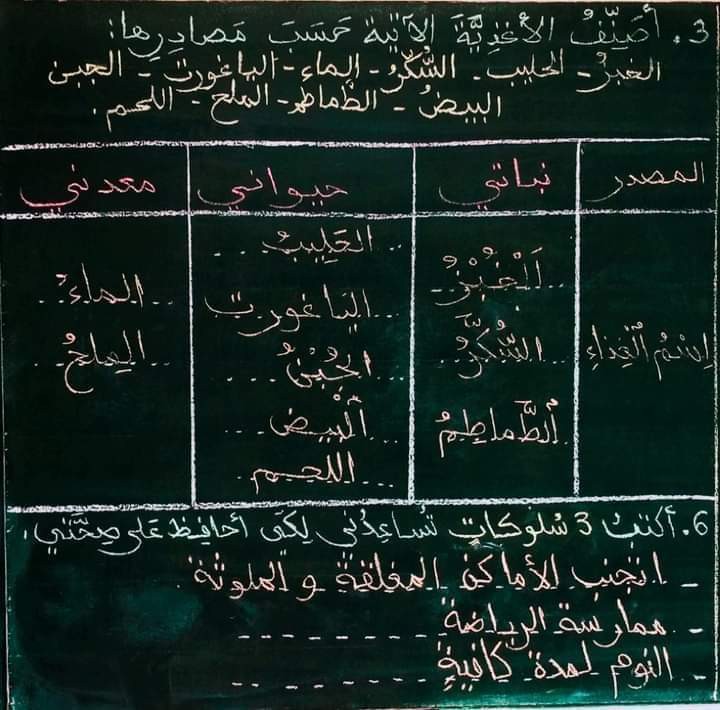 3. أُصَنِّفُ الأَغْذِيَّةَ الآتِيَةَ حَسَبَ مَصَادِرِهَا:
الخبزُ - الحليب - السُّكَّرُ - الماء - الياغورت - الجبن
البيضُ - الطَّماطم - الملح - اللحم.
المصدر نباتي حيواني معدني
إِسْمُ الْغِذَاءِ
اَلْخُبْزُ
السُّكَّرُ
اَلطَّماطِمُ
الحَلِيبُ
اليَاغورت
الجُبْنُ
اَلْبَيْضُ
اللحم
الماءُ
الملحُ
6. أكتبُ 3 سُلوكاتٍ تُساعِدُني لِكَيْ أُحافِظَ عَلى صِحَّتي:
- اتجنب الأماكن المغلقة و الملوثة.
- ممارسة الرياضة
- النوم لمدة كافيةٍ